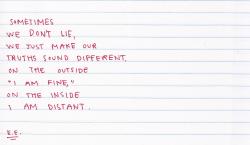 SOMETIMES
WE DON'T LIE,
WE JUST MAKE OUR
TRUTHS SOUND DIFFERENT.
ON THE OUTSIDE
"I AM FINE,"
ON THE INSIDE
I AM DISTANT.
E.E.